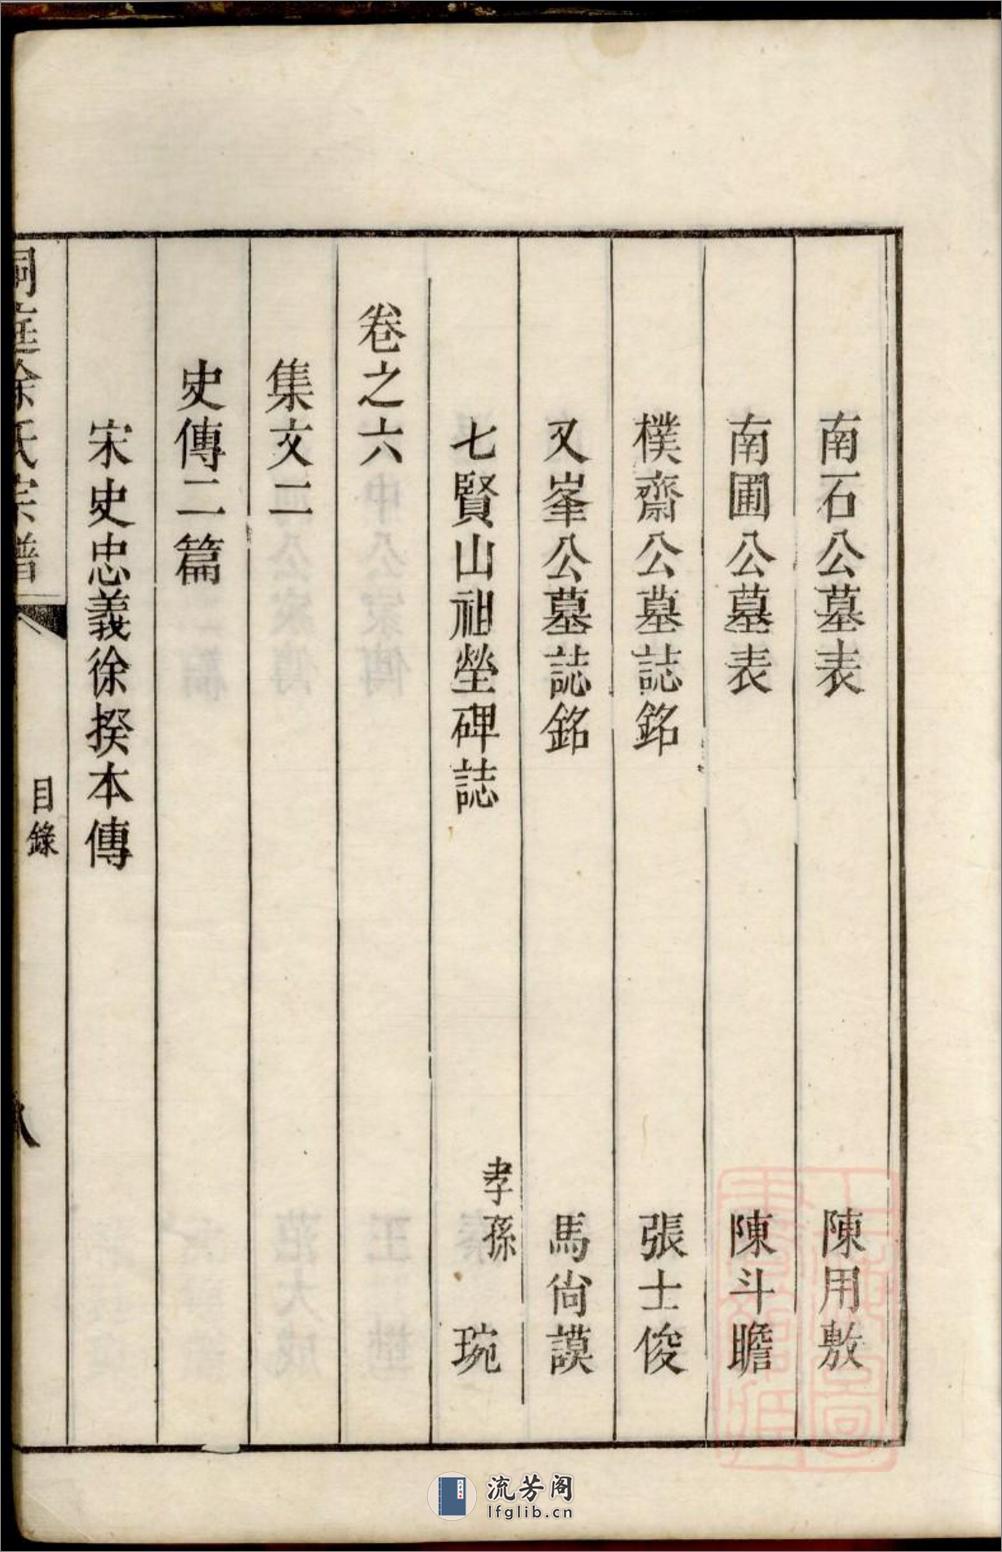 南石公墓表 陳用敷
南圃公墓表 陳斗瞻
樸齋公墓誌銘 張士俊
又峯公墓誌銘 馬尙謨
七賢山祖塋碑誌 孝孫 琬
卷之六
集文二
史傳二篇
宋史忠義徐揆本傳
洞庭徐氏宗譜 目錄 八
流芳阁
lfglib.cn